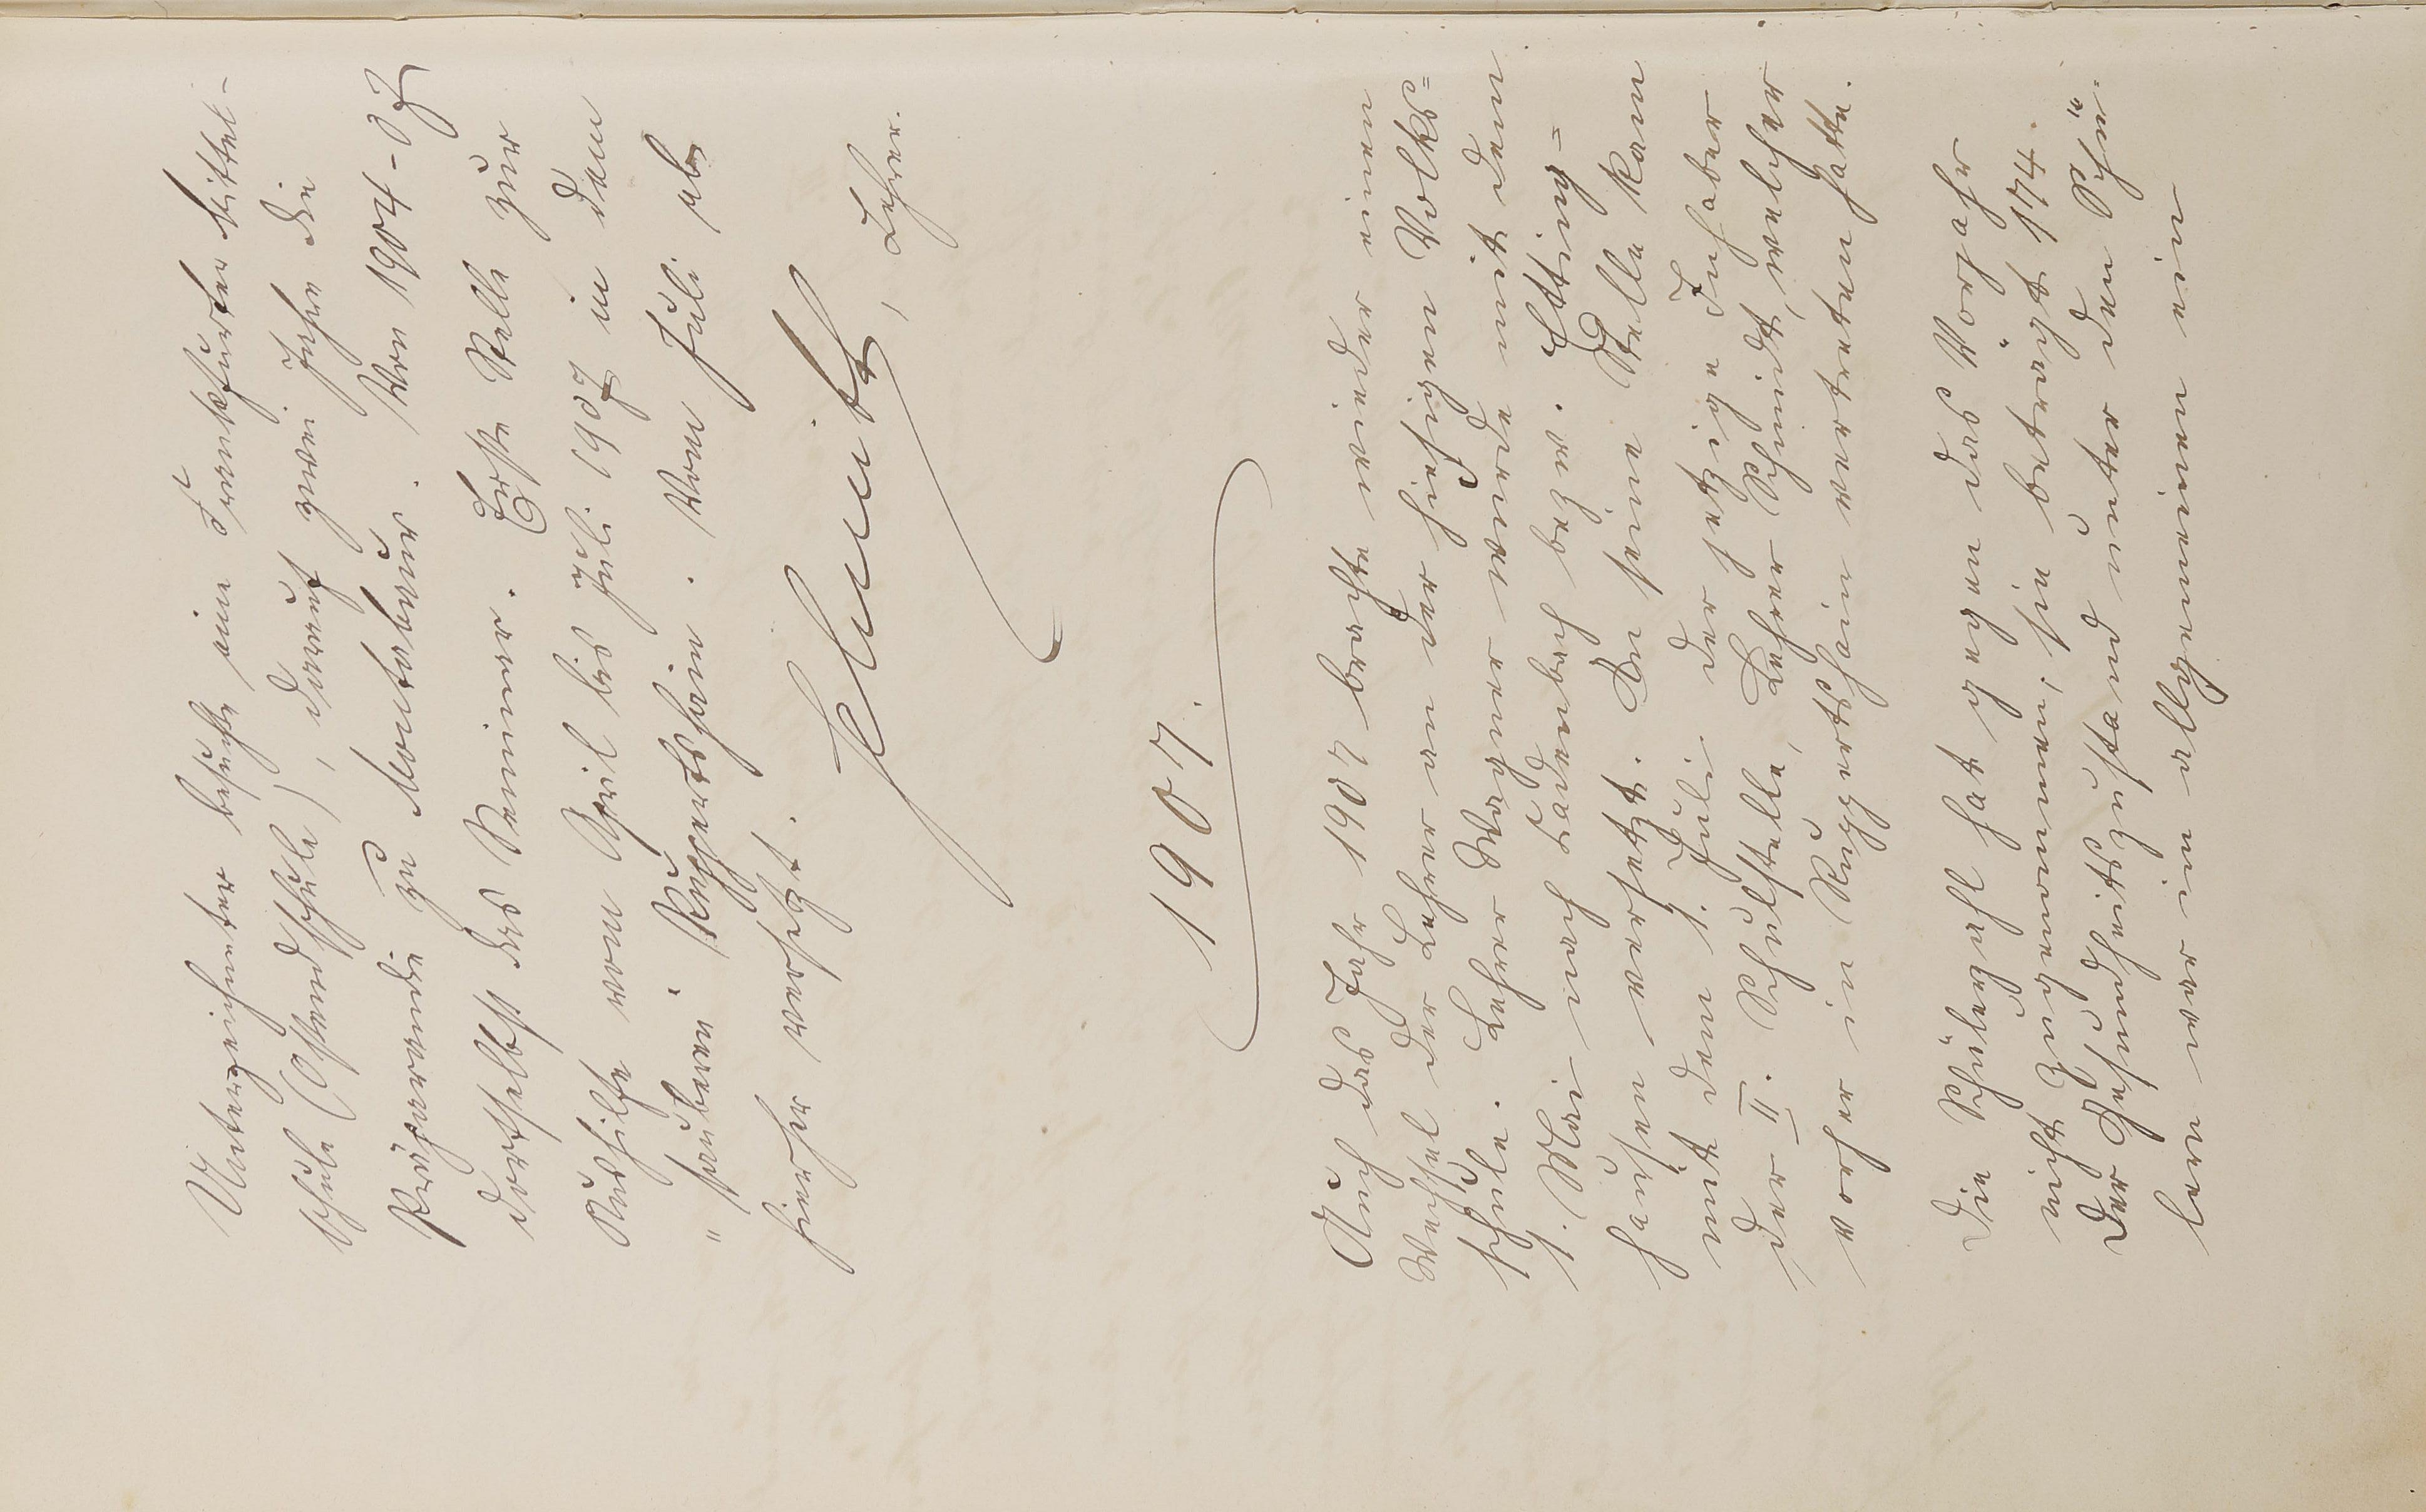 Unterzeichneter besuchte eine Frankfurter Mittel-
schule (Ostendschule), darauf zwei Jahre die
Präparandie zu Montabaur. Von 1904-07
daselbst das Seminar. Erste Stelle zur
Aushilfe vom April bis Juli 1907 in dem
"sauberen" Ruppertshain. Vom Juli ab
hierher versetzt.
Schmidt, Lehrer.
1907.
Auch das Jahr 1907 brachte wieder einen
Wechsel der Lehrer an der hiesigen Volks=
schule. Lehrer Wagner wurde mit dem
1. Mai nach Fadenbach bezw. Etting=
hausen versetzt. An seine Stelle kam
mit dem 1. Juli der jetzige Inhaber
der II. Schulstelle, Lehrer Schmidt, welcher
vorher in Ruppertshain vertreten hatte.
Die Schülerzahl hat gegen das Vorjahr
nicht zugenommen; sie beträgt 174.
Der Gesundheitszustand unter den Schü=
lern war im allgemeinen ein